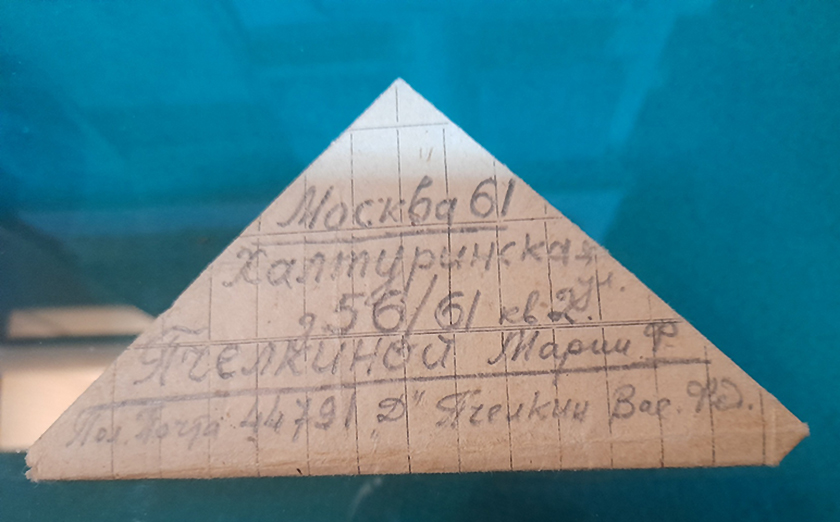 Москва 61
Халтуринская ул.
д. 56/61 кв-2.
Пчелкиной Марии Ф
Пол. Почта 44791 „Д" Пчелкин Вас. Фед.